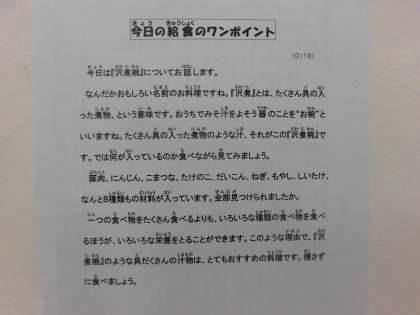 今日の給食のワンポイント
(0118)
今日は『沢煮椀』についてお話します。
なんだかおもしろい名前のお料理ですね。『沢煮』とは、たくさん具の入
った煮物、という意味です。おうちでみそ汁をよそう器のことを“お椀”と
いいますね。たくさん具の入った煮物のような汁、それがこの『沢煮椀』で
す。では何が入っているのか食べながら見てみましょう。
豚肉、にんじん、こまつな、たけのこ、だいこん、ねぎ、もやし、しいたけ、
なんと8種類もの材料が入っています。全部見つけられましたか。
一つの食べ物をたくさん食べるよりも、いろいろな種類の食べ物を食べ
るほうが、いろいろな栄養をとることができます。このような理由で、『沢
煮椀』のような具だくさんの汁物は、とてもおすすめの料理です。残さず
に食べましょう。